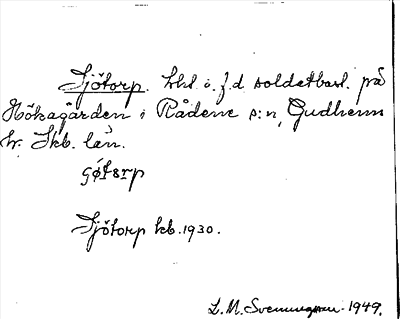 Sjötorp. lht å f.d soldatbost. på
Hökagården i Rådene s:n, Gudhems
hr. Skb. län.
ʂø̀tɔrp
Sjötorp kb. 1930.
L. M. Svenungsson 1949.